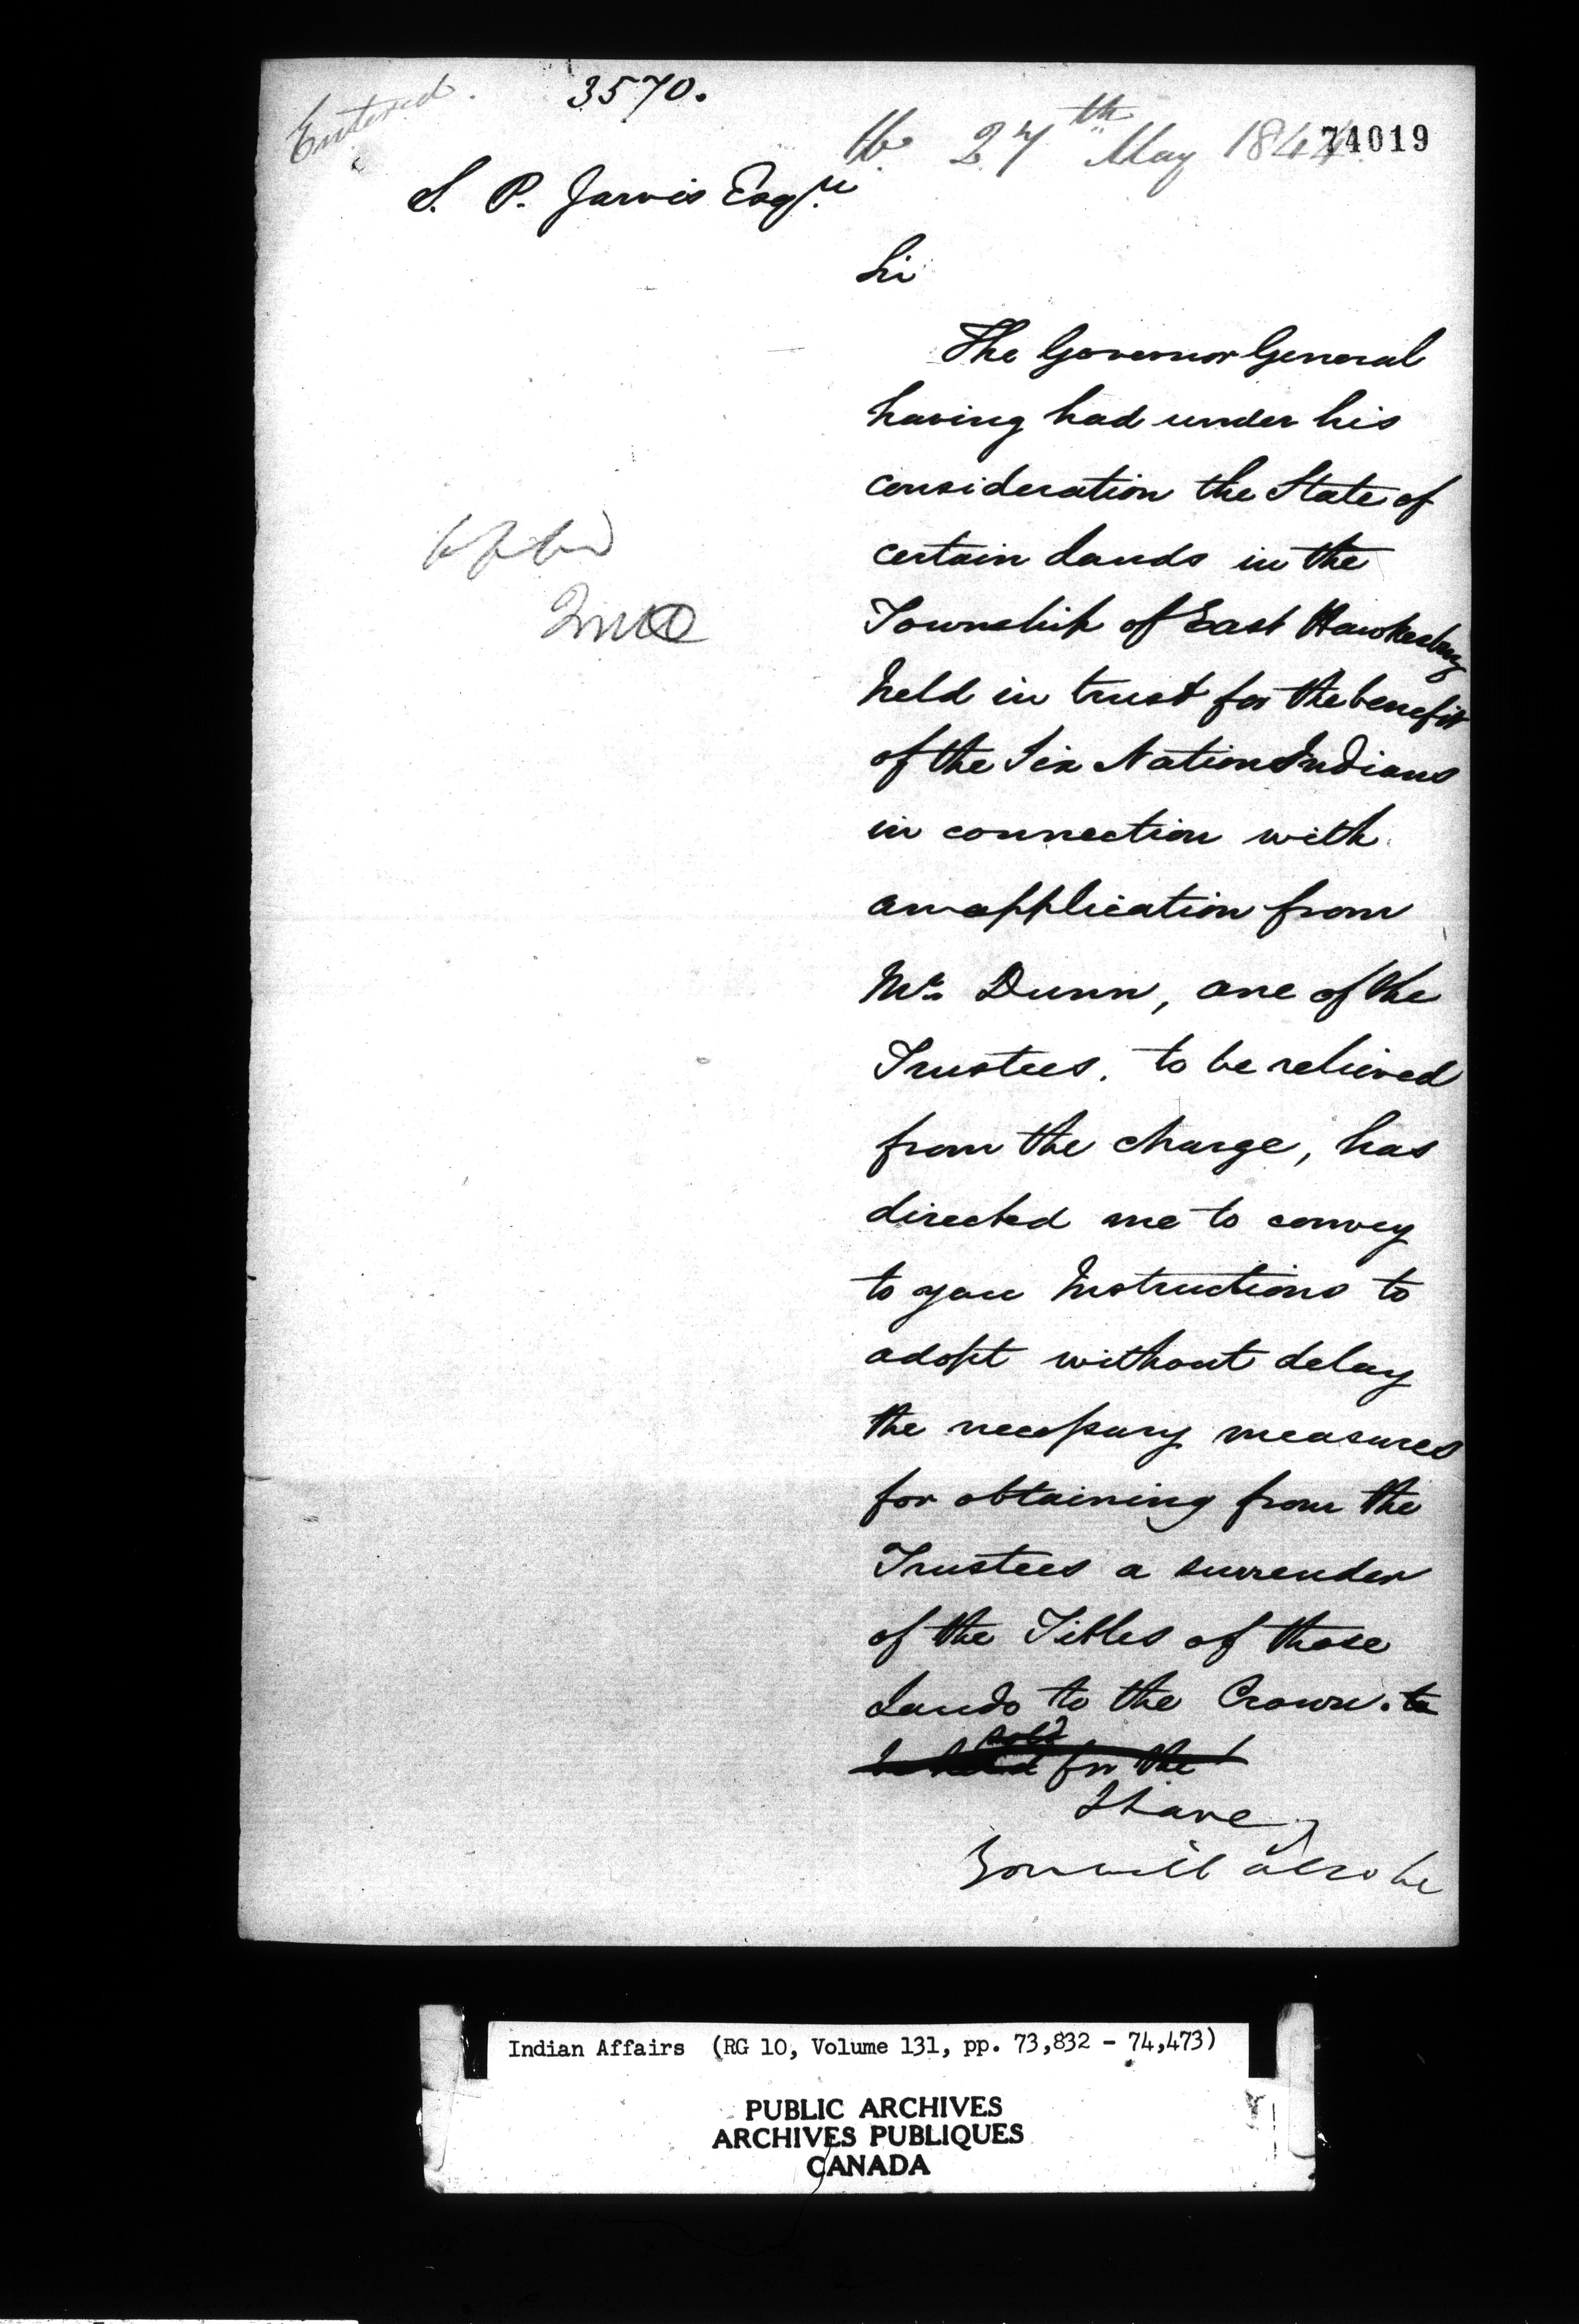 Entered.
3570.
27th May 1844
74019
S. P. Jarvis Esqre
Sir
The Governor General
having had under his
consideration the State of
certain Lands in the
Township of East Hawkesbury
held in trust for the benefit
of the Six Nations Indians
in connection with
an application from
Mr. Dunn, one of the
Trustees. to be relieved
from the charge, has
directed me to convey
to you Instructions to
adopt without delay
the necessary measures
for obtaining from the
Trustees a surrender
of the Titles of those
Lands to the Crown. to
sold
be held for the
I have
You will also be
Indian Affairs (RG 10, Volume 131, pp. 73,832 - 74,473)
PUBLIC ARCHIVES
ARCHIVES PUBLIQUES
CANADA